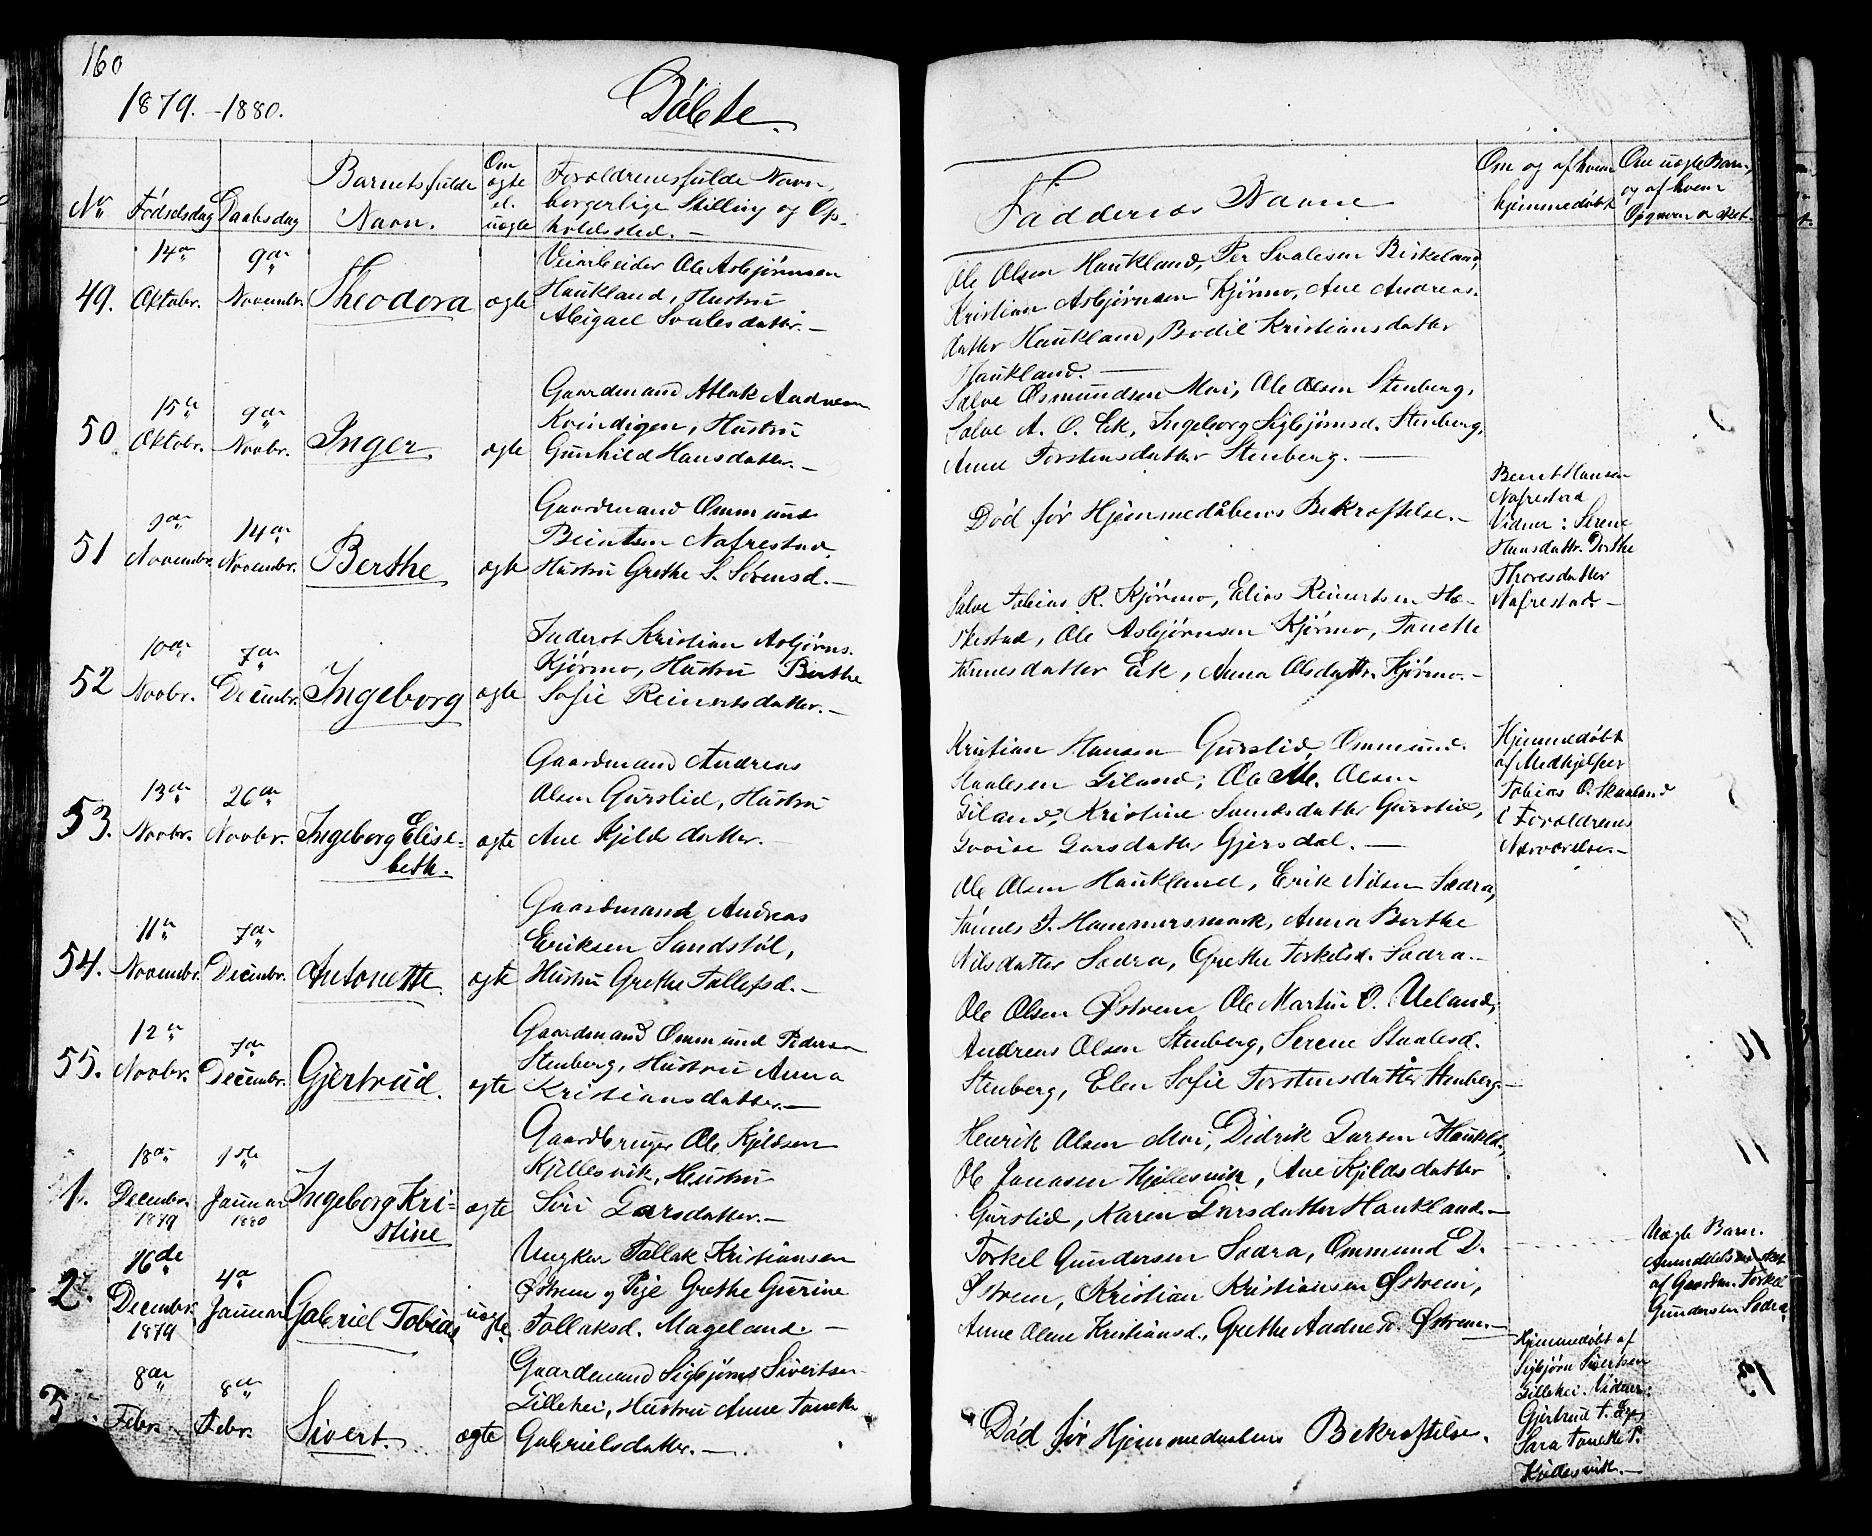 160
1879.-1880.
Døbte.
No
Fødselsdag
Daabsdag
Barnets fulde
Navn.
Om
ægte
el.
uægte
Forældrenes fulde Navn,
borgerlige Stilling og Op-
holdssted.
Faddernes Navne
Om og af hvem
hjemmedøbt
Om uægte Barn,
og af hvem
Opgaven er skeet.
49.
14de
Oktobr.
9de
Novembr.
Theodora
ægte
Veiarbeider Ole Asbjørnsen
Haukland, Hustru
Abigael Svalesdatter.-
Ole Olsen Haukland, Per Svalesen Birkeland,
Kristian Asbjørnsen Kjørmo, Ane Andreas-
datter Haukland, Bodil Kristiansdatter
Haukland.
50
15de
Oktobr.
9de
Novbr.
Inger.
ægte
Gaardmand Atlak Aadnesen
Kvindigen, Hustru
Gunhild Hansdatter.-
Salve Osmundsen Moi, Ole Olsen Stenberg,
Salve A. O. Eik, Ingeborg Sigbjørnsd. Stenberg,
Anne Torstensdatter Stenberg.
51
9de
Novembr.
14de
Novembr.
Berthe
ægte
Gaardmand Ommund
Beintsen Nafrestad
Hustru Grethe S. Sørensd.-
Død før Hjemmedåbens Bekræftelse.-
Bernt Hansen
Nafrestad
Vidner: Serene
Hansdattr. Dorthe
Thoresdatter
Nafrestad.-
52
10de
Novbr.
7de
Decembr.
Ingeborg
ægte
Inderst Kristian Asbjørns.
Kjørmo, Hustru Berthe
Sofie Reinertsdatter.-
Salve Tobias R. Kjørmo, Elias Reinertsen He-
skestad, Ole Asbjørnsen Kjørmo, Tanette
Tønnesdatter Eik, Anna Olsdattr. Kjørmo.-
53.
13de
Novbr.
26de
Novbr.
Ingeborg Elise-
beth.
ægte
Gaardmand Andreas
Olsen Gurslid, Hustru
Ane Kjildsdatter.
Kristian Hansen Gurslid, Ommund
Staalesen Eiland, Ole M. Olsen
Eiland, Kristine Samtsdatter Gurslid,
Lovise Larsdatter Gjersdal.
Hjemmedøbt
af Medhjelper
Tobias O. Skaaland
i Forældrenes
Nærværelse.-
54.
11te
Novembr.
7de
Decembr.
Antonette
ægte
Gaardmand Andreas
Eriksen Sandstøl,
Hustru Grethe Tollefsd.-
Ole Olsen Haukland, Erik Nilsen Sædra,
Tønnes J. Hammersmark, Anna Berthe
Nilsdatter Sædra, Grethe Torkelsd. Sædra.-
55.
12te
Novbr.
7de
Decembr.
Gjertrud.
ægte
Gaardmand Ommund Pedersen
Stenberg, Hustru Anna
Kristiansdatter.-
Ole Olsen Østrem, Ole Martin O. Ueland,
Andreas Olsen Stenberg, Serene Staalesd.
Stenberg, Elen Sofie Torstensdatter Stenberg.-
1.
18de
Decembr.
1879
1ste
Januar
1880
Ingeborg Kri-
stine
ægte
Gaardbruger Ole Kjildsen
Kjellesvik, Hustru
Siri Larsdatter.-
Henrik Olsen Moi, Didrik Larsen Haukld.,
Ole Jonasen Kjellesvik, Ane Kjildsdatter
Gurslid, Karen Larsdatter Haukland.-
2.
16de
Decembr.
1879
4de
Januar
Gabriel Tobias
uægte.
Ungkar Tollak Kristiansen
Østrem og Pige Grethe Gurine
Tollaksd. Mageland.-
Torkel Gundersen Sædra, Ommund D.
Østrem, Kristian Kristiansen Østrem,
Anne Oline Kristiansd., Grethe Aadnesd. Østrem.-
Uægte Barn.
Anmeldelse skeet
af Gaardm. Torkel
Gundersen Sædra
3.
8de
Febr.
8de
Febr.
Sivert.
ægte
Gaardmand Sigbjørn Sivertsen
Lillehei, Hustru Anne Tanette
Gabrielsdatter.-
Død før Hjemmedaabens Bekræftelse.
Hjemmedøbt af
Sigbjørn Sivertsen
Lillehei. Vidner:
Gjertrud T.
Sara Tanette T.
Kjellesvik.-